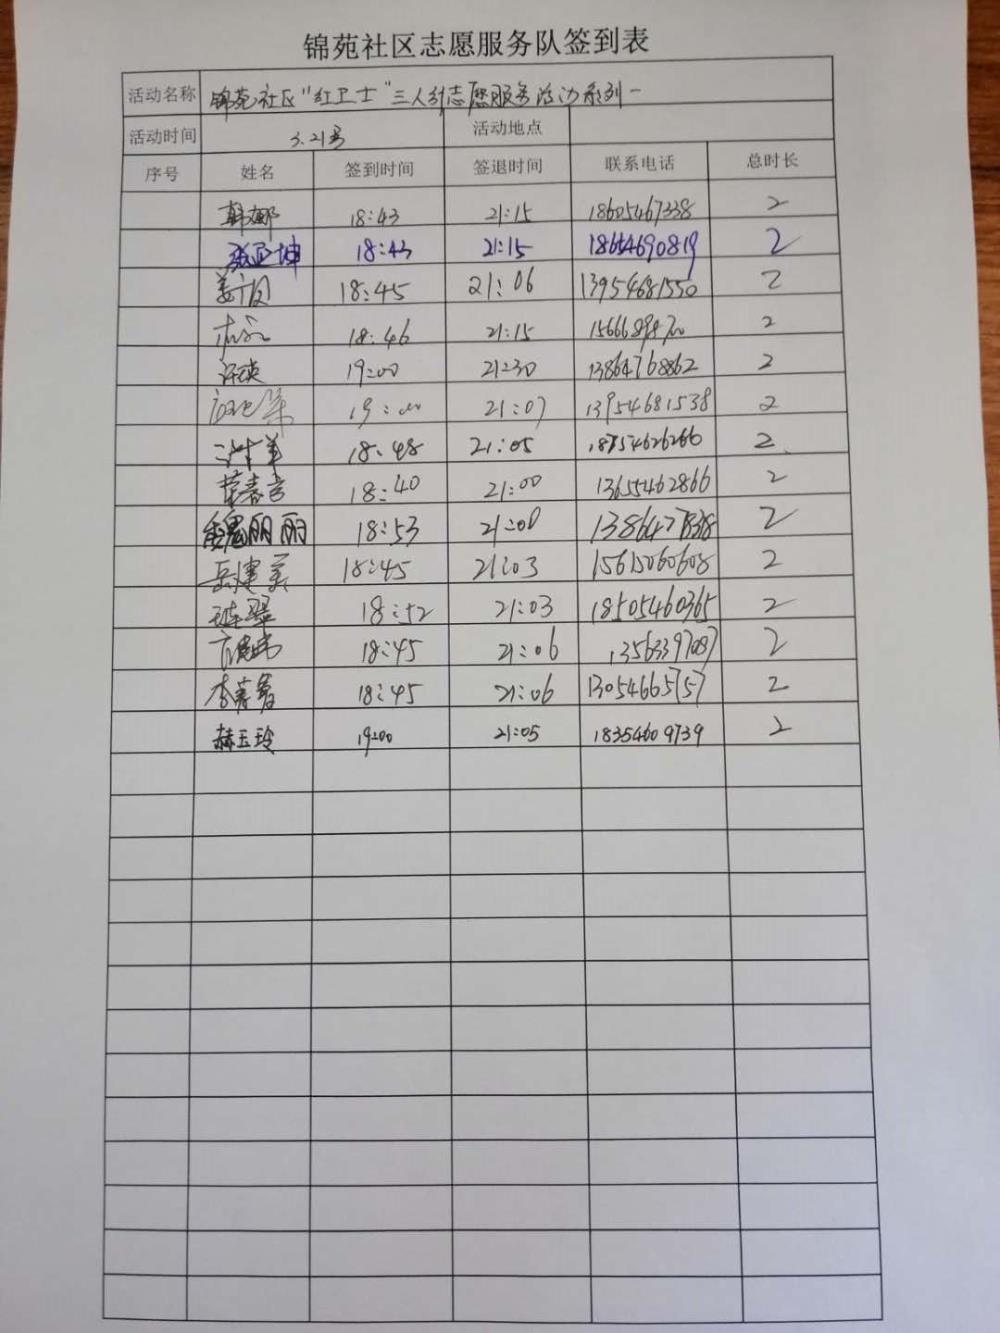 锦苑社区志愿服务队签到表
活动名称 锦苑社区“红卫士”三人行志愿服务活动系列一
活动时间 3.21号 活动地点
序号 姓名 签到时间 签退时间 联系电话 总时长
韩娜 18:43 21:15 18605467338 2
张亚坤 18:43 21:15 18654690819 2
18:45 21:06 13954681550 2
18:46 21:15 2
许瑛 19:00 21:30 13864768862 2
19:00 21:07 13954681538 2
18:48 21:05 18754626266 2
18:40 21:00 13655462866 2
魏丽丽 18:53 21:08 2
岳建美 18:45 21:03 15615060608 2
18:52 21:03 18505460365 2
18:45 21:06 13563397087 2
18:45 21:06 13054665757 2
赫玉玲 19:00 21:05 18354609739 2